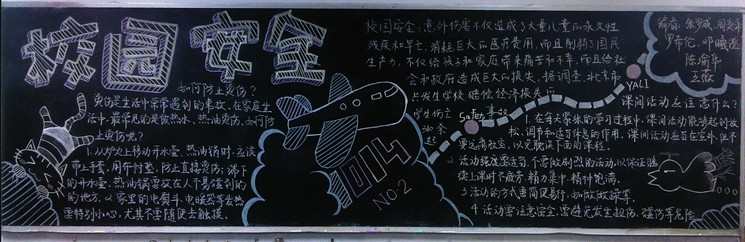 校园安全
如何防止烫伤?
烫伤是生活中常常遇到的事故,在家庭生
活中,最常见的是被热水、热油烫伤,如何防
止烫伤呢?
1.从炉火上移动开水壶、热油锅时,应该
带上手套,用布衬垫,防止直接烫伤;端下
的开水壶、热油锅要放在人不易碰到的
的地方。2.家里的电熨斗、电暖器等发热
要特别小心,尤其不要随便去触摸。
校园安全:意外伤害不仅造成了大量儿童的永久性
残疾和早亡,消耗巨大的医疗费用,而且削弱了国民
生产力。不仅给孩子和家庭带来痛苦和不幸,而且给社
会和政府造成巨大的损失。据调查,北京市
1014
NO.2
Safety
YALI
课间活动应注意什么?
1.在每天紧张的学习过程中,课间活动能够起到放
松、调节和适当休息的作用。课间活动应当在室外,但不
要远离教室,以免耽误下面的课程。
2.活动强度要适当,不要做剧烈的活动,以保证继
续上课时不疲劳、精力集中、精神饱满。
3.活动的方式要简便易行,如做做操等。
4.活动要注意安全,要避免发生扭伤、碰伤等危险